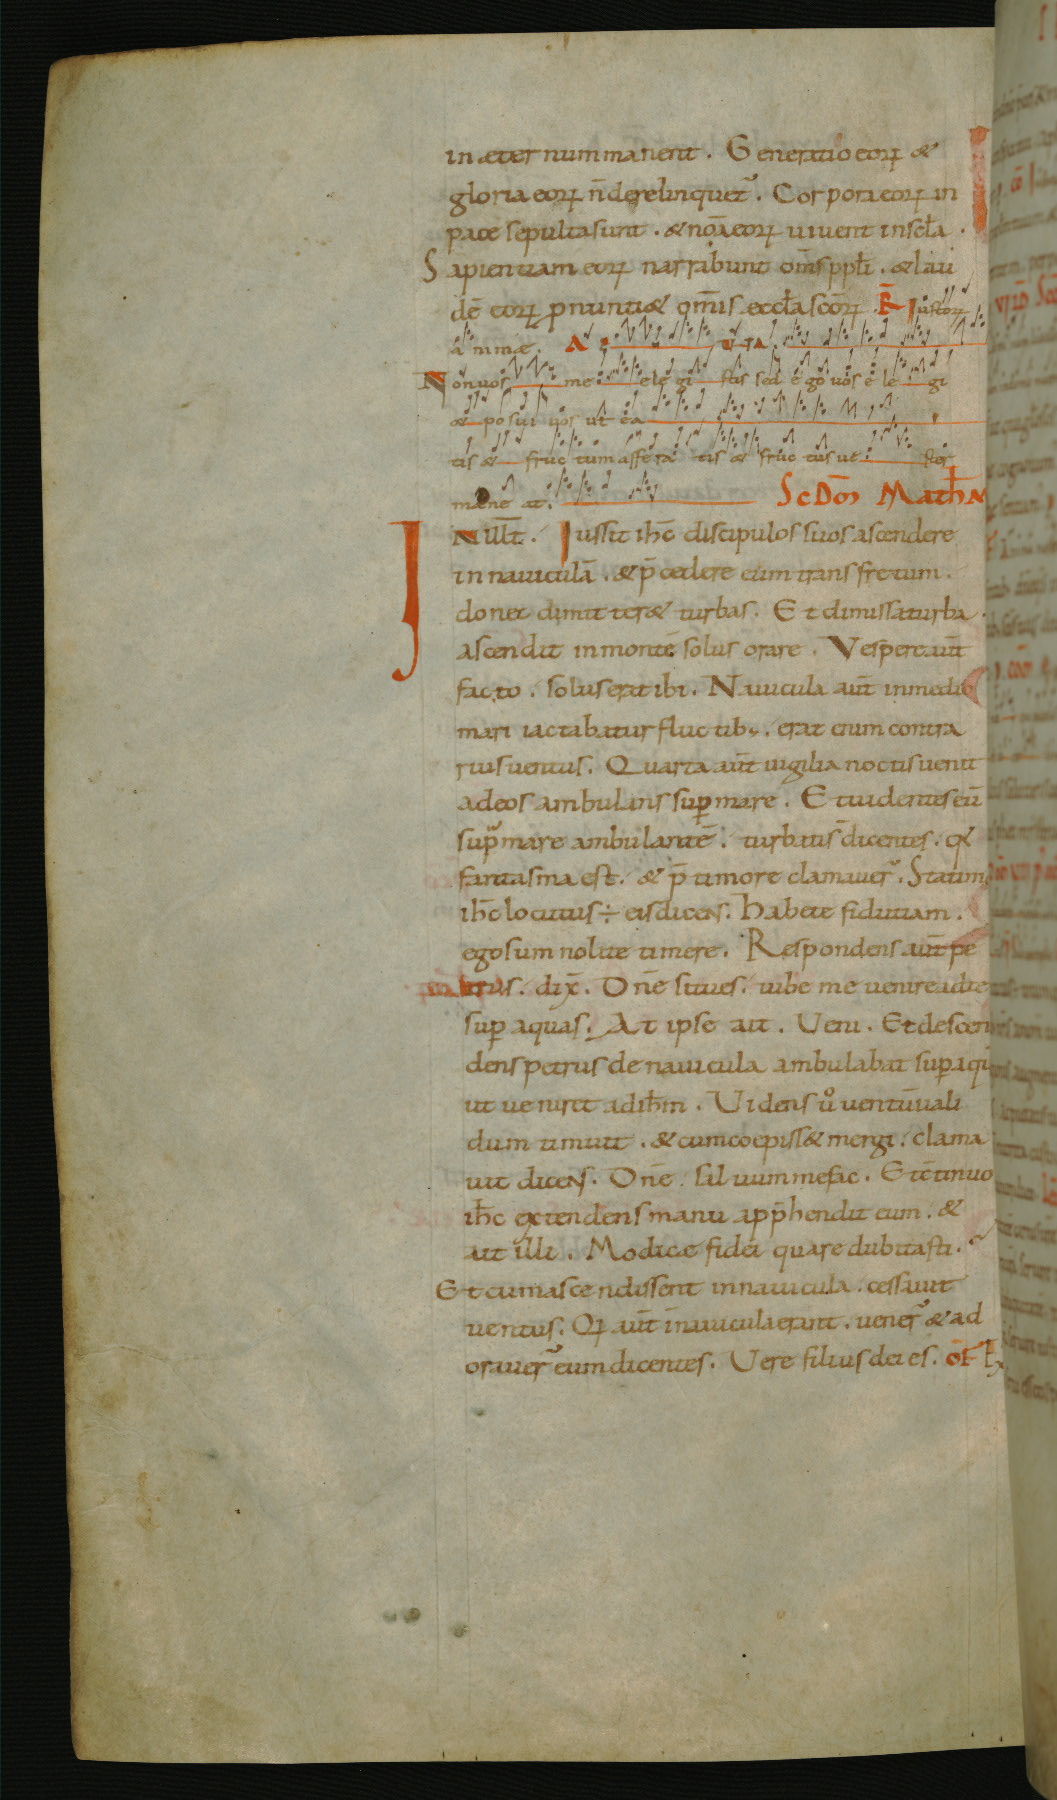 in æternum manent. Generatio eoꝝ &
gloria eoꝝ n̄ derelinquet᷑. Corpora eoꝝ in
pace sepulta sunt. & nōa eoꝝ uiuent in scl̄a.
Sapientiam eoꝝ narrabunt om̄s ppl̄i. & lau
dē eoꝝ pnuntiæ om̄is eccl̄a scōꝝ. R̄ Iustoꝝ
animæ. A
Non uos me elegi stis sed ego uos ele gi
& posui uos ut ea
tis & fruc tum affera tis & fruc tus ue ster
mane at. Scdm̄ Math̄
IN ill̄t. Iussit ih̄c discipulos suos ascendere
in nauiculā. & p̄cedere eum trans fretum.
donec dimitter& turbas. Et dimissa turba
ascendit in montē solus orare. Vespere aūt
facto. solus erat ibi. Nauicula aūt in medio
mari iactabatur fluctib;. erat enim contra
rius uentus. Quarta aūt uigilia noctis uenit
ad eos ambulans suꝑ mare. Et uidentes eū
sup̄ mare ambulantē. turbati s̄ dicentes. qđ
fantasma est. & p̄ timore clamauer᷑. Statim
ih̄c locutus ÷ eis dicens. Habete fidutiam.
ego sum nolite timere. Respondens aūt pe
trus. dix̄. Dn̄e si tu es. iube me uenire ad te
suꝑ aquas. At ipse ait. Ueni. Et descen
dens petrus de nauicula ambulabat suꝑ aqū
ut ueniret ad ih̄m. Uidens ů uentū uali
dum timuit. & cum coepiss& mergi. clama
uit dicens. Dn̄e. saluum me fac. Et c̄tinuo
ih̄c extendens manu app̄hendit eum. &
ait illi. Modicæ fidei quare dubitasti.
Et cum ascendissent in nauicula. cessauit
uentus. Qi aūt in nauicula erant. uener᷑ & ad
orauer᷑ eum dicentes. Uere filius dei es. of̄ Ex